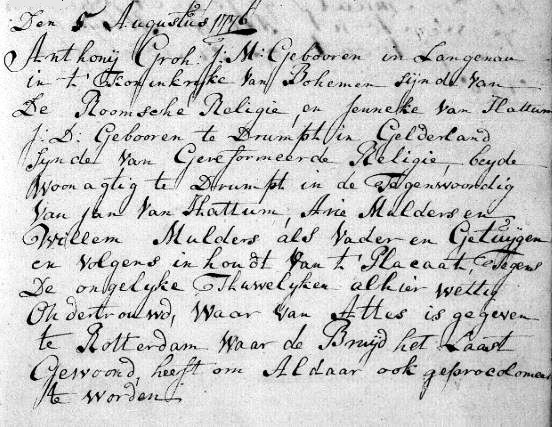 Den 5 Augustus 1776
Anthonij Groh. J: M: Gebooren in Langenau
in 't Koninkrijke van Bohemen sijnde van
De Roomsche Religie, en Jenneke van Hattum
J: D: Gebooren te Drumpt in Gelderland
sijnde van Gereformeerde Religie, beyde
Woonagtig te Drumpt in de Tegenwoordig
van Jan van Hattum, Arie Mulders en
Willem Mulders als Vader en Getuijgen
en volgens inhoudt van 't Placaat, Tegens
De ongelyke Huwelyken alhier wettig
Ondertrouwd, waar van Attes is gegeven
te Rotterdam waar de Bruyd het Laast
Gewoond, heeft om Aldaar ook geproclomeer
te worden